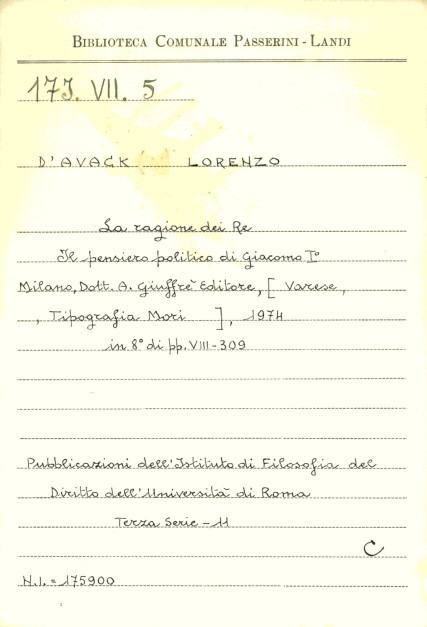 BIBLIOTECA COMUNALE PASSERINI - LANDI
17J. VII. 5
D'AVACK LORENZO
La ragione dei Re
Il pensiero politico di Giacomo I°
Milano, Dott. A. Giuffrè Editore, [ Varese,
, Tipografia Mori ], 1974
in 8° di pp. VIII-309
Pubblicazioni dell'Istituto di Filosofia del
Diritto dell'Università di Roma
Terza Serie - 11
C
N.I. = 175900